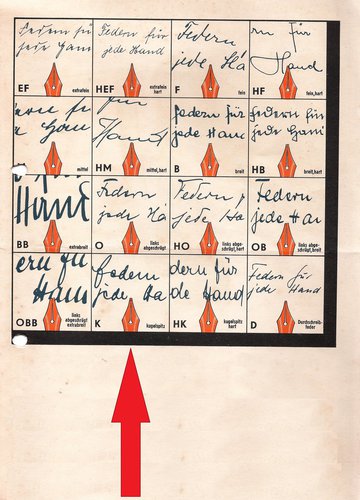 Federn fü
jede Han
EF
extrafein
Federn für
jede Hand
HEF
extrafein,
hart
Federn
jede Ha
F
fein
rn für
Hand
HF
fein, hart
ern fü
e Han
mittel
für
Hand
HM
mittel, hart
federn für
jede Hand
B
breit
federn für
jede Hand
HB
breit, hart
Hand
BB
extrabreit
Federn
jede Ha
O
links
abgeschrägt
Federn f
jede Ha
HO
links abge-
schrägt, hart
Federn
jede Ha
OB
links abge-
schrägt, breit
ern fü
Han
OBB
links
abgeschrägt
extrabreit
federn
jede Ha
K
kugelspitz
dern für
de Hand
HK
kugelspitz
hart
Federn für
jede Hand
D
Durchschreib-
feder